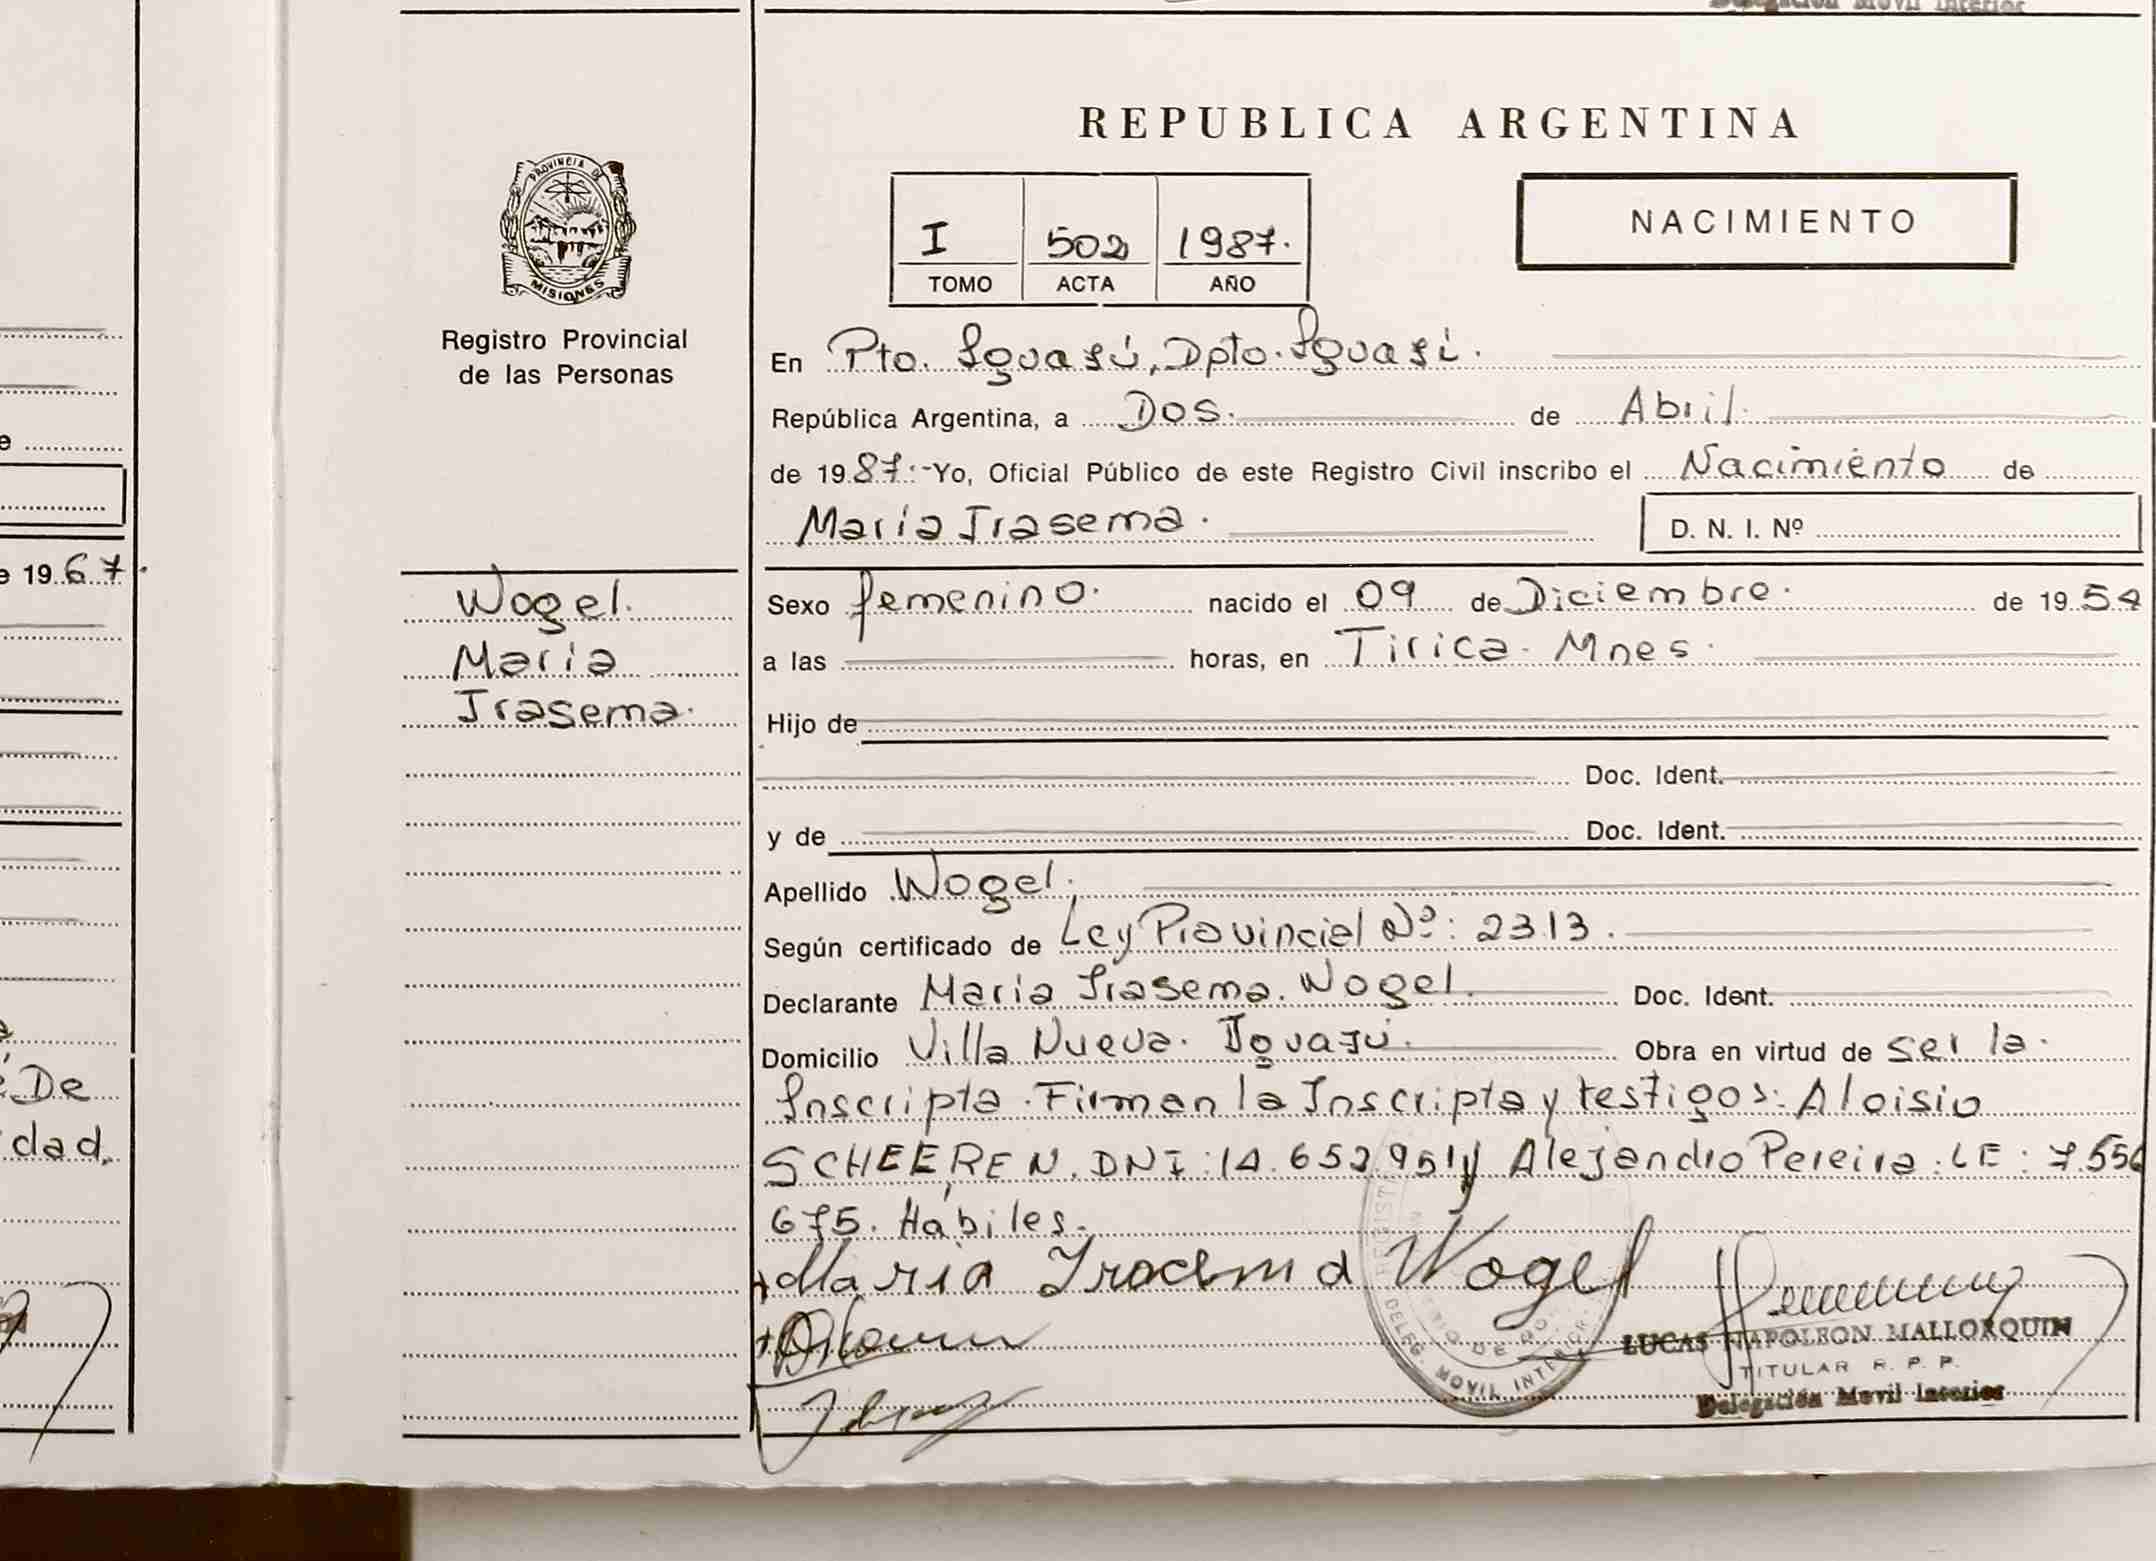 Delegación Movil Interior
PROVINCIA DE
MISIONES
Registro Provincial
de las Personas
REPUBLICA ARGENTINA
I 502 1987.
TOMO ACTA AÑO
NACIMIENTO
En Pto. Iguasú, Dpto. Iguasí.
República Argentina, a Dos. de Abril.
de 1987.- Yo, Oficial Público de este Registro Civil inscribo el Nacimiento de
María Irasema. D. N. I. Nº
Wogel.
María
Irasema.
Sexo femenino. nacido el 09 de Diciembre. de 1954
a las horas, en Tirica. Mnes.
Hijo de
Doc. Ident.
y de Doc. Ident.
Apellido Wogel.
Según certificado de Ley Provincial Nº: 2313.
Declarante María Irasema. Wogel. Doc. Ident.
Domicilio Villa Nueva. Iguasú. Obra en virtud de ser la.
Inscripta. Firman la Inscripta y testigos: Aloisio
SCHEEREN. DNI: 14.652.951 y Alejandro Pereira: LE: 7.556
675. Hábiles.
Maria Iracema Wogel
DELEG. MOVIL INTERIOR
LUCAS NAPOLEON MALLORQUIN
TITULAR R. P. P.
Delegación Movil Interior
e
e 1967.
De
dad.